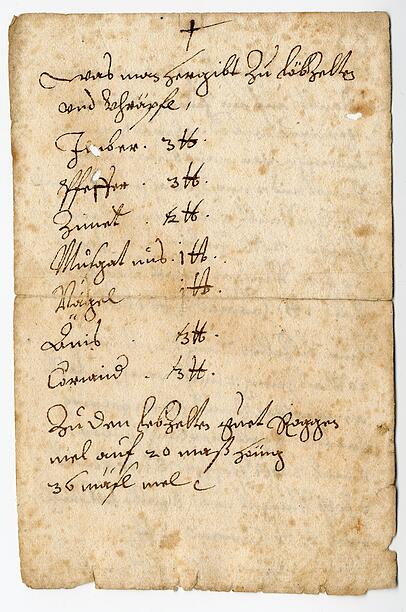 was man hergibt Zu lebZelten
und
Imber. 3 ℔.
Pfeffer. 3 ℔.
Zimet. ℔.
Musgat nus. 1 ℔.
Nägel 1 ℔.
Änis. ℔.
Coriand. ℔.
Zu den lebZelten guet Roggen
mel auf 20 maß
36 mäßl mel